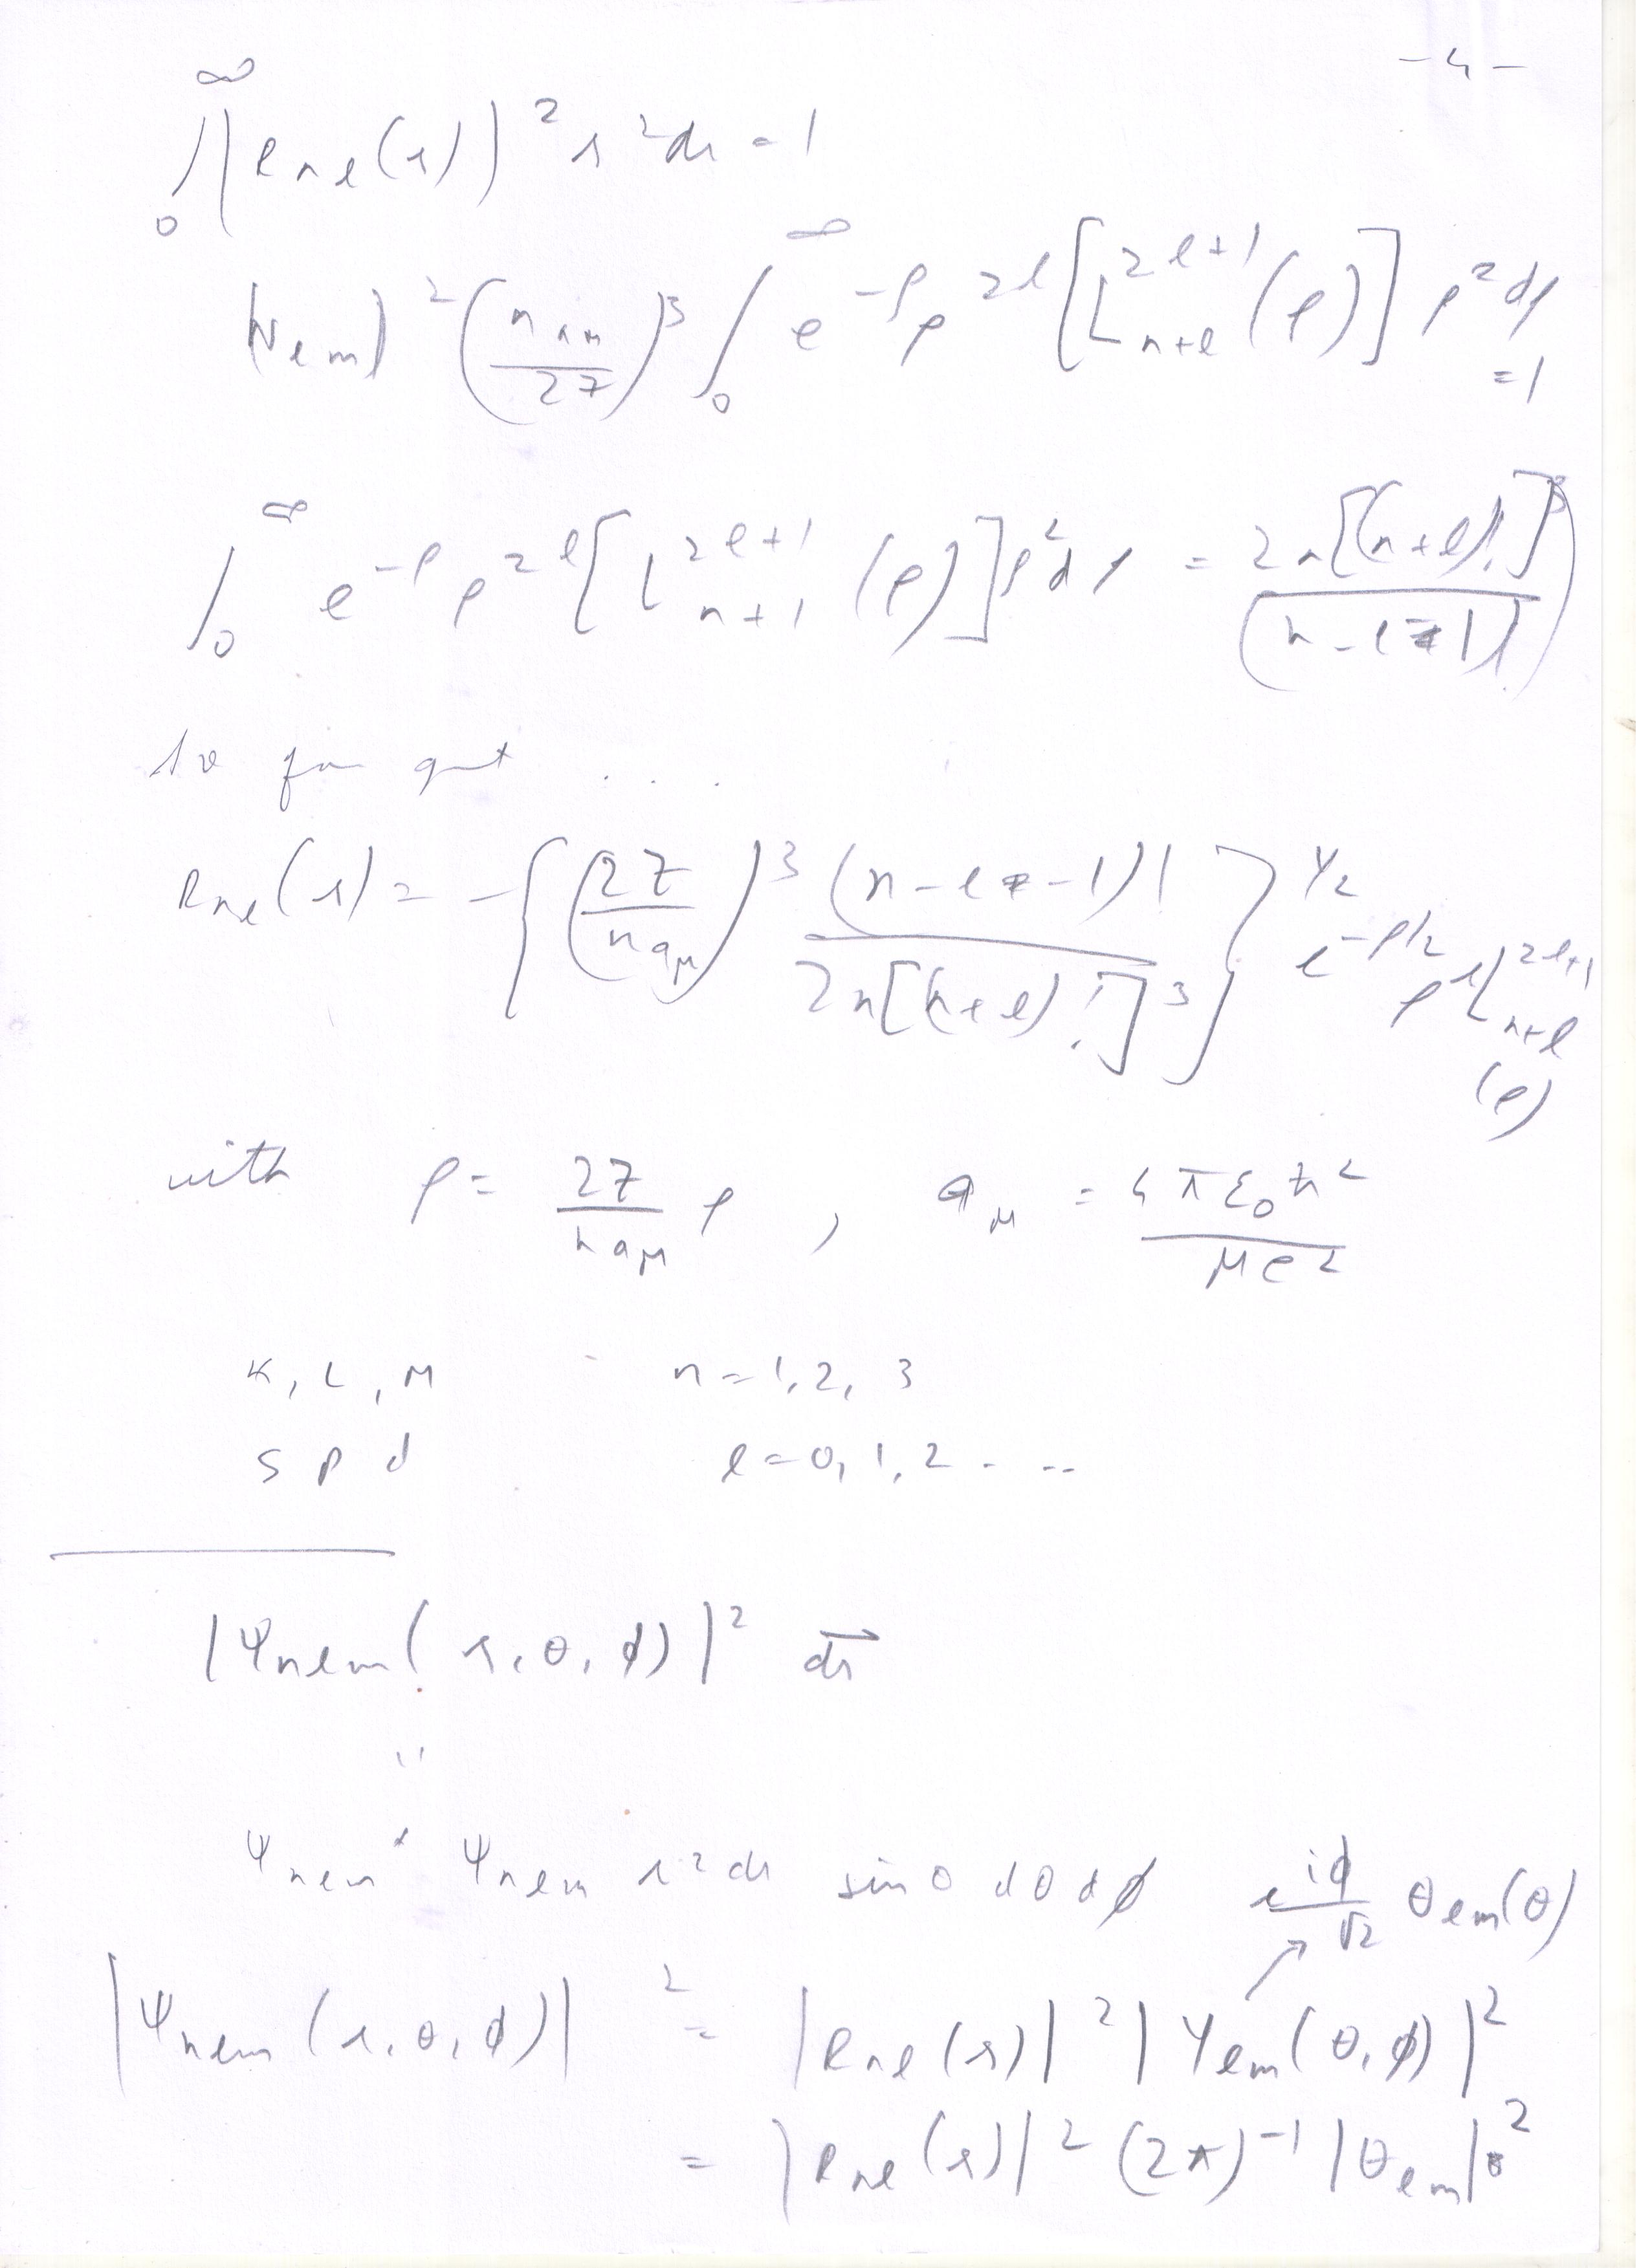 -4-
∫₀^∞ |R_nl(r)|² r² dr = 1
|N_lm|² (n a_μ / 2Z)³ ∫₀^∞ e^{-ρ} ρ^{2l} [L_{n+l}^{2l+1}(ρ)] ρ² dρ = 1
∫₀^∞ e^{-ρ} ρ^{2l} [L_{n+1}^{2l+1}(ρ)] ρ² dρ = 2n[(n+l)!]³ / (n-l-1)!
so far get ....
R_nl(r) = -{(2Z / n a_μ)³ (n-l-1)! / 2n[(n+l)!]³}^{1/2} e^{-ρ/2} ρ^l L_{n+l}^{2l+1}(ρ)
with ρ = 2Z / n a_μ ρ , a_μ = 4πε₀ħ² / μe²
K, L, M n=1,2,3
s p d l=0,1,2 - --
|Ψ_nlm(r,θ,φ)|² dr⃗
"
Ψ_nlm* Ψ_nlm r² dr sinθ dθ dφ e^{iφ} / √2 Θ_lm(θ)
|Ψ_nlm(r,θ,φ)|² = |R_nl(r)|² |Y_lm(θ,φ)|²
= |R_nl(r)|² (2π)^{-1} |Θ_lm|²